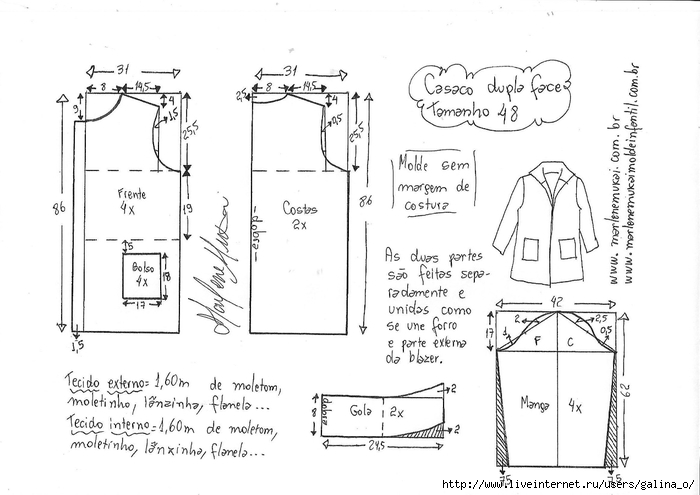 31
8
14,5
9
4
1,5
25,5
86
Frente
4x
19
5
Bolso
4x
18
17
1,5
31
8
14,5
2,5
4
0,5
25,5
Costas
2x
-dobra-
86
Casaco dupla face
Tamanho 48
Molde sem
margem de
costura
As duas partes
são feitas sepa-
radamente e
unidas como
se une forro
e parte externa
da blazer.
www.marlenemukai.com.br
www.marlenemukaimoldeinfantil.com.br
42
17
2
2,5
1
0,5
F
C
62
Manga
4x
7,5
7,5
dobra
8
Gola
2x
2
2
24,5
Tecido externo=1,60m de moletom,
moletinho, lãnzinha, flanela...
Tecido interno=1,60m de moletom,
moletinho, lãnzinha, flanela...
http://www.liveinternet.ru/users/galina_o/